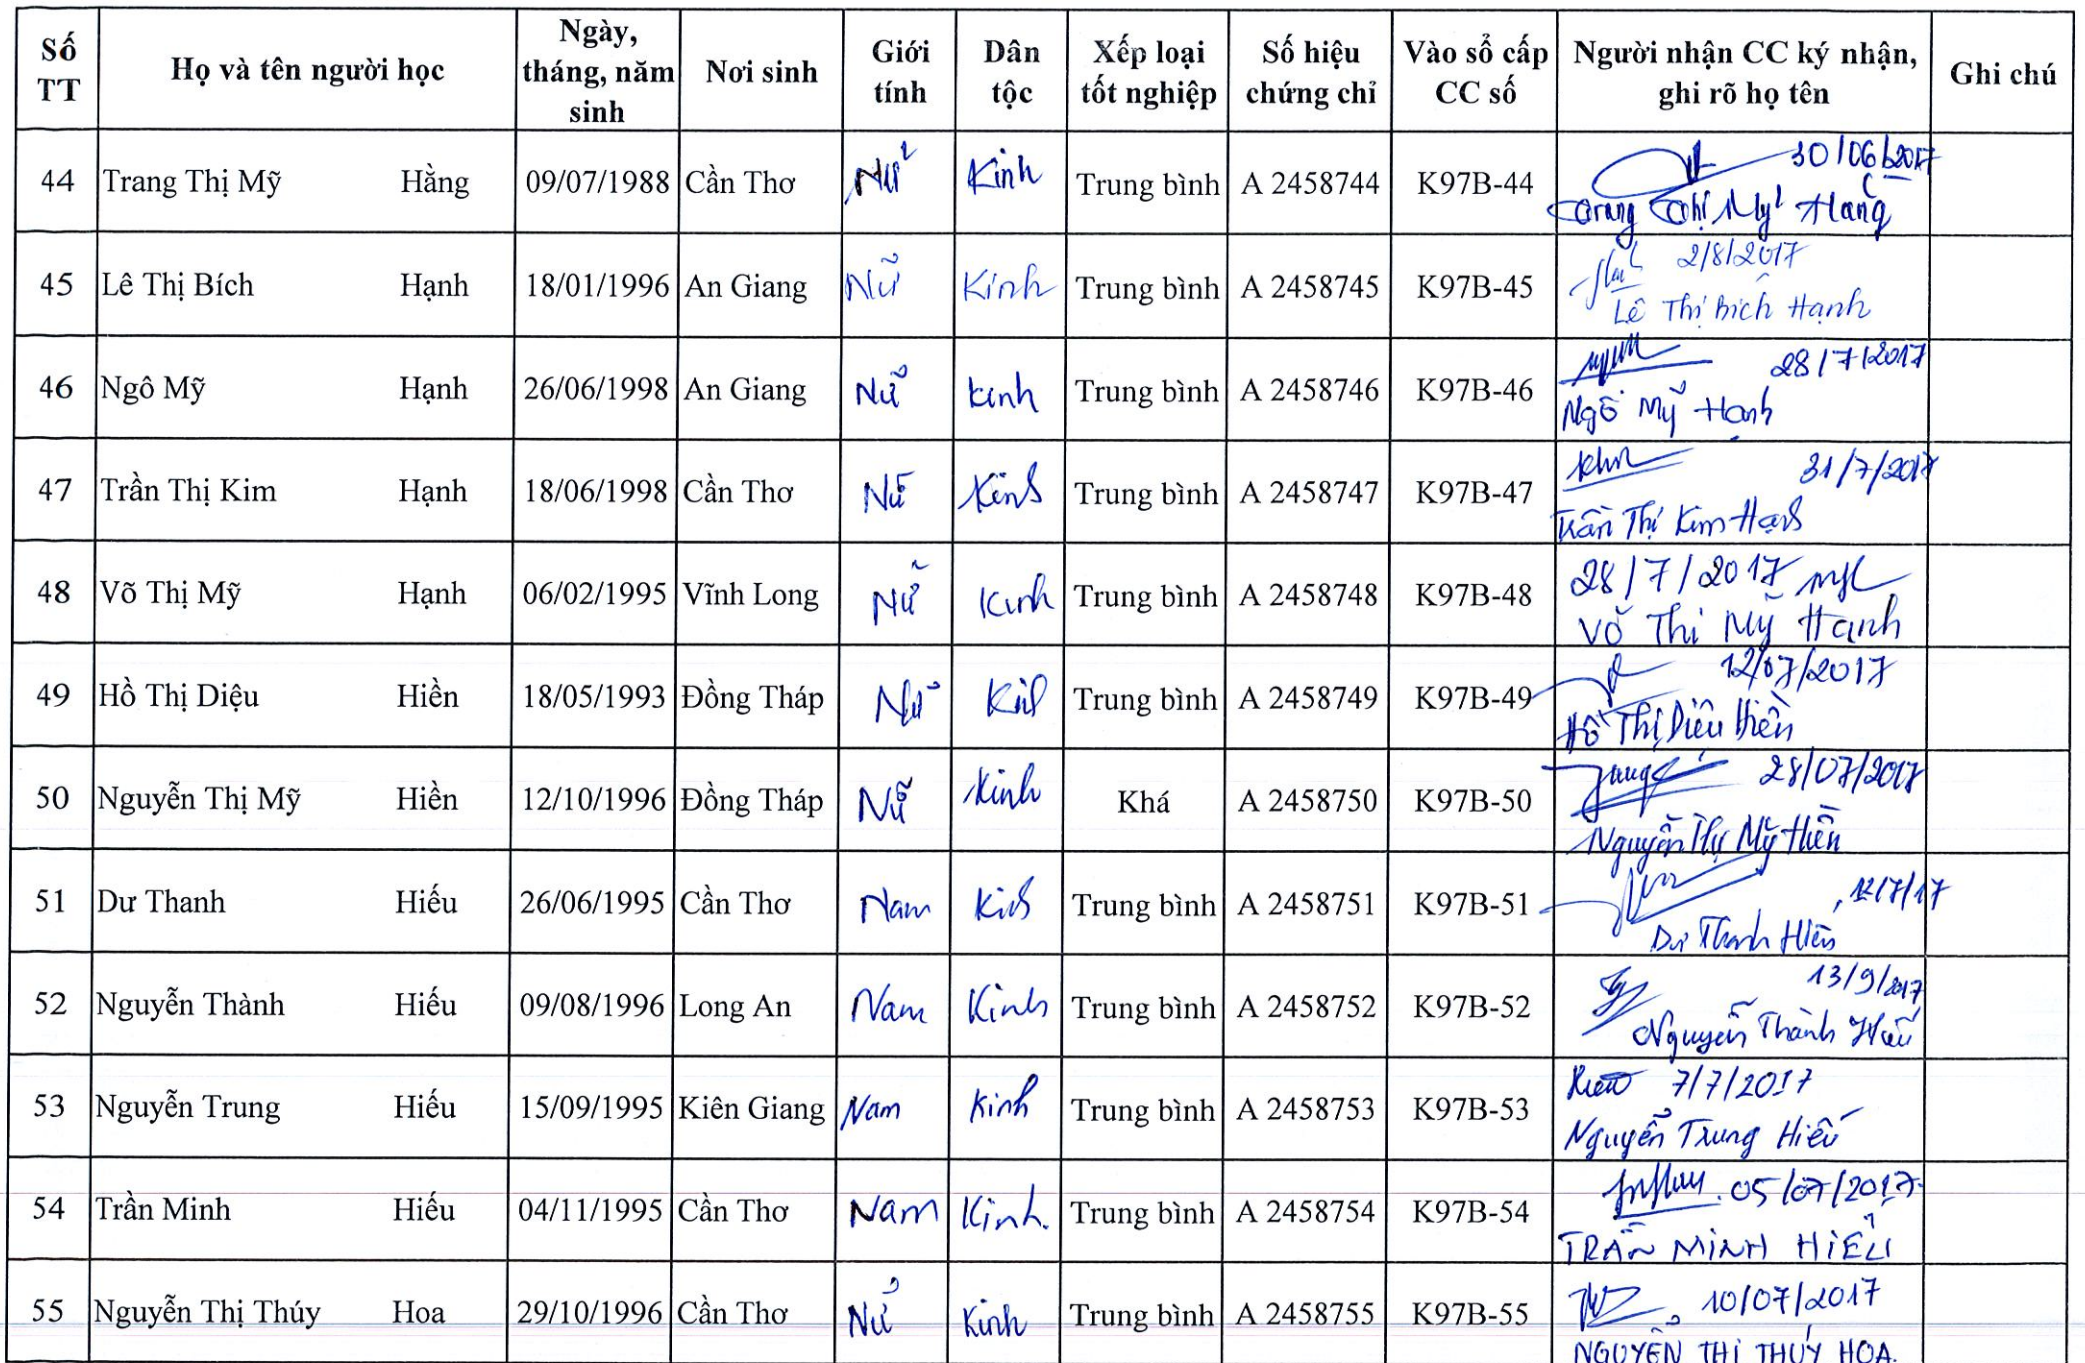 Số TT Họ và tên người học Ngày, tháng, năm sinh Nơi sinh Giới tính Dân tộc Xếp loại tốt nghiệp Số hiệu chứng chỉ Vào sổ cấp CC số Người nhận CC ký nhận, ghi rõ họ tên Ghi chú
44 Trang Thị Mỹ Hằng 09/07/1988 Cần Thơ Nữ Kinh Trung bình A 2458744 K97B-44 30/06/2017
Trang Thị Mỹ Hằng
45 Lê Thị Bích Hạnh 18/01/1996 An Giang Nữ Kinh Trung bình A 2458745 K97B-45 2/8/2017
Lê Thị Bích Hạnh
46 Ngô Mỹ Hạnh 26/06/1998 An Giang Nữ Kinh Trung bình A 2458746 K97B-46 28/7/2017
Ngô Mỹ Hạnh
47 Trần Thị Kim Hạnh 18/06/1998 Cần Thơ Nữ Kinh Trung bình A 2458747 K97B-47 31/7/2017
Trần Thị Kim Hạnh
48 Võ Thị Mỹ Hạnh 06/02/1995 Vĩnh Long Nữ Kinh Trung bình A 2458748 K97B-48 28/7/2017
Võ Thị Mỹ Hạnh
49 Hồ Thị Diệu Hiền 18/05/1993 Đồng Tháp Nữ Kinh Trung bình A 2458749 K97B-49 12/07/2017
Hồ Thị Diệu Hiền
50 Nguyễn Thị Mỹ Hiền 12/10/1996 Đồng Tháp Nữ Kinh Khá A 2458750 K97B-50 28/07/2017
Nguyễn Thị Mỹ Hiền
51 Dư Thanh Hiếu 26/06/1995 Cần Thơ Nam Kinh Trung bình A 2458751 K97B-51 12/7/17
Dư Thanh Hiếu
52 Nguyễn Thành Hiếu 09/08/1996 Long An Nam Kinh Trung bình A 2458752 K97B-52 13/9/2017
Nguyễn Thành Hiếu
53 Nguyễn Trung Hiếu 15/09/1995 Kiên Giang Nam Kinh Trung bình A 2458753 K97B-53 7/7/2017
Nguyễn Trung Hiếu
54 Trần Minh Hiếu 04/11/1995 Cần Thơ Nam Kinh. Trung bình A 2458754 K97B-54 05/07/2017
TRẦN MINH HIẾU
55 Nguyễn Thị Thúy Hoa 29/10/1996 Cần Thơ Nữ Kinh Trung bình A 2458755 K97B-55 10/07/2017
NGUYỄN THỊ THÚY HOA.